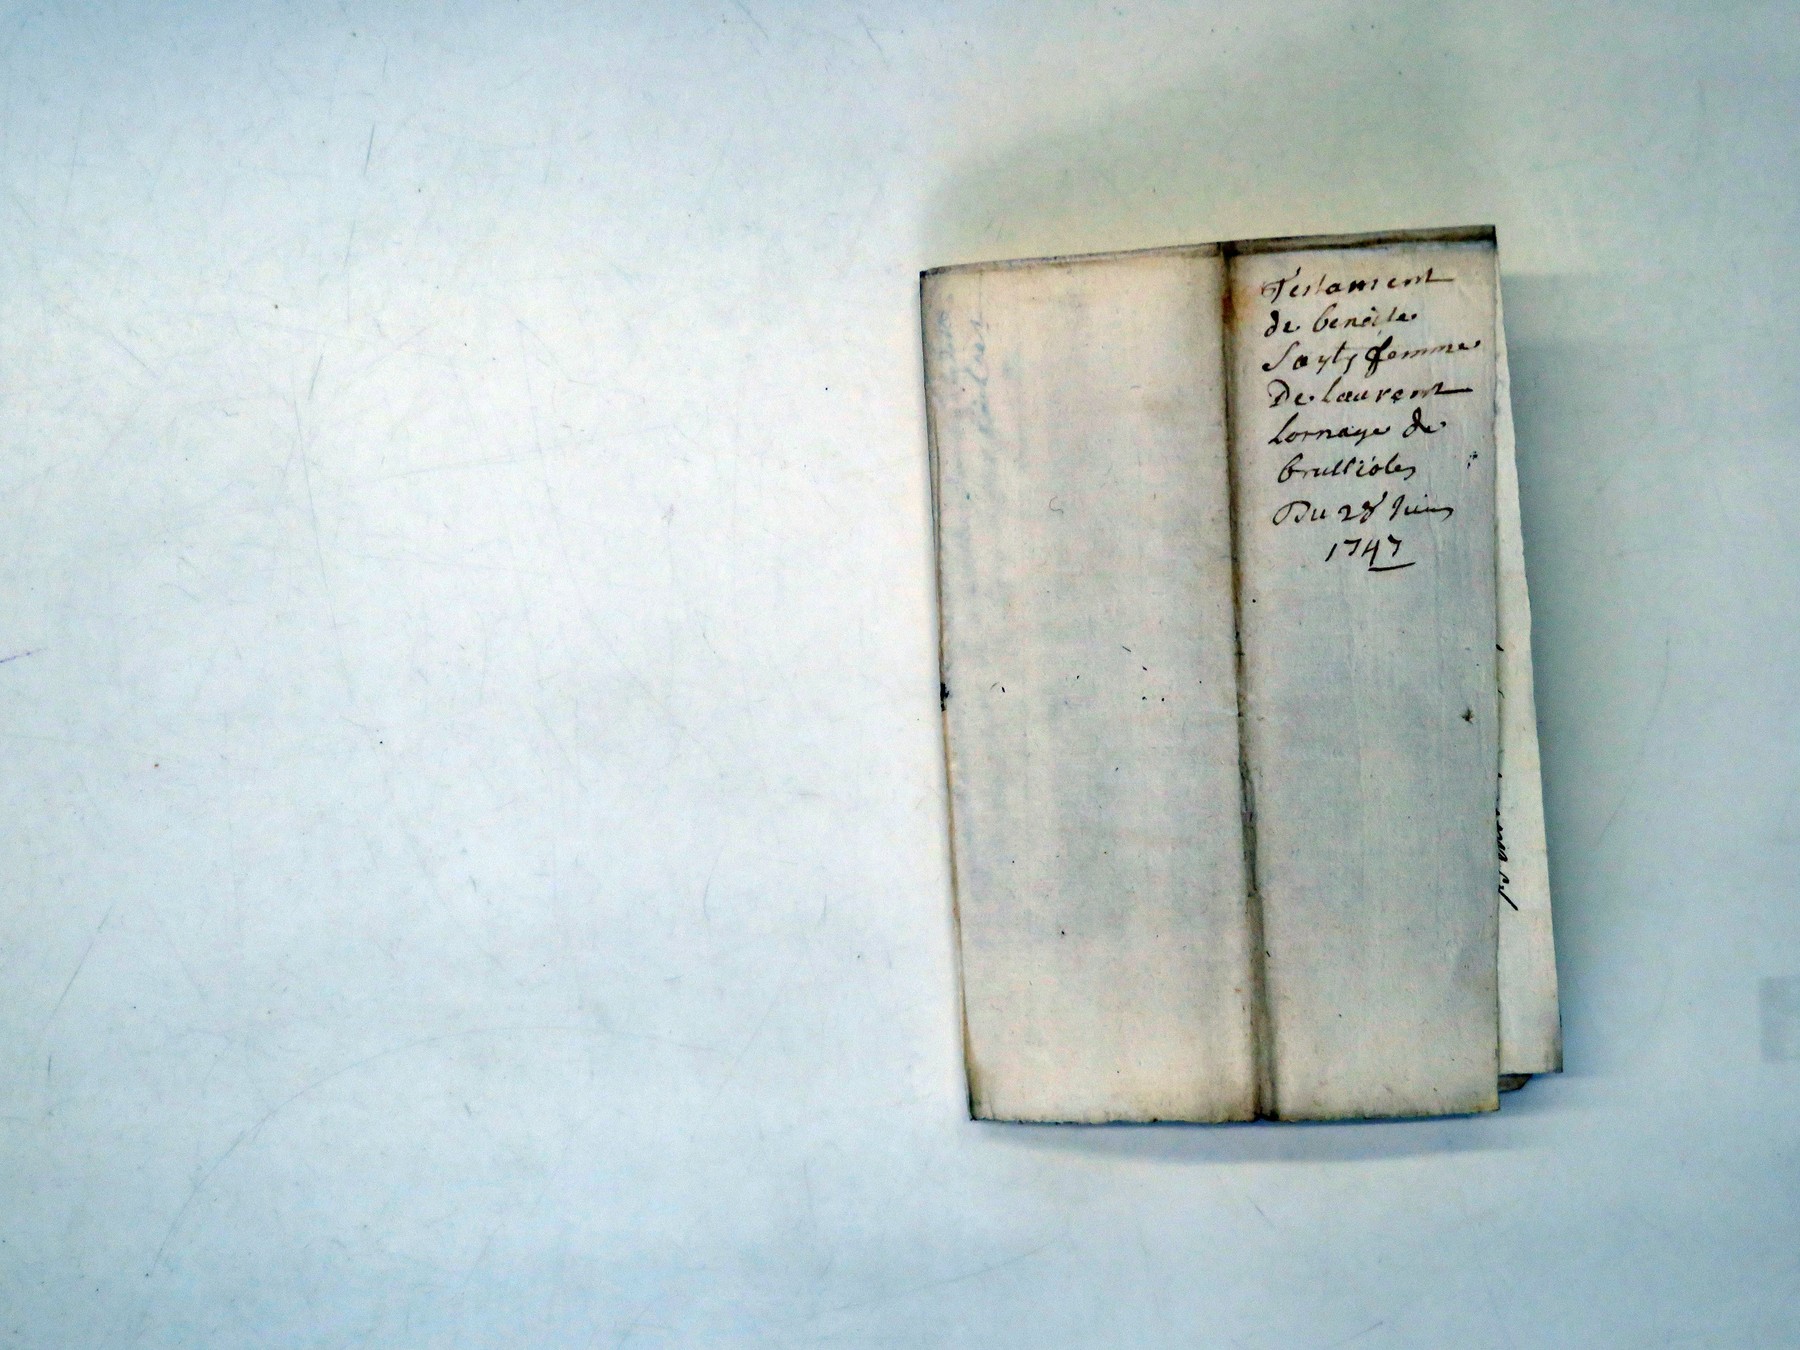 Testament
de benoite
femme
De laurent
lornage de
brullioles
Du 28 Juin
1747